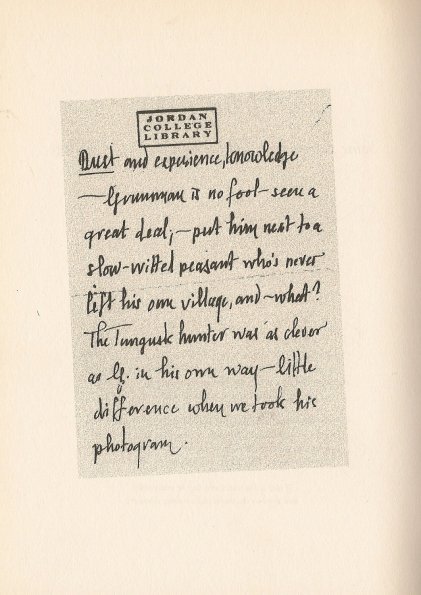 JORDAN
COLLEGE
LIBRARY
Dust and experience, knowledge
— Grumman is no fool — seen a
great deal; — put him next to a
slow-witted peasant who's never
left his own village, and — what?
The Tungusk hunter was as clever
as G. in his own way — little
difference when we took his
photogram.